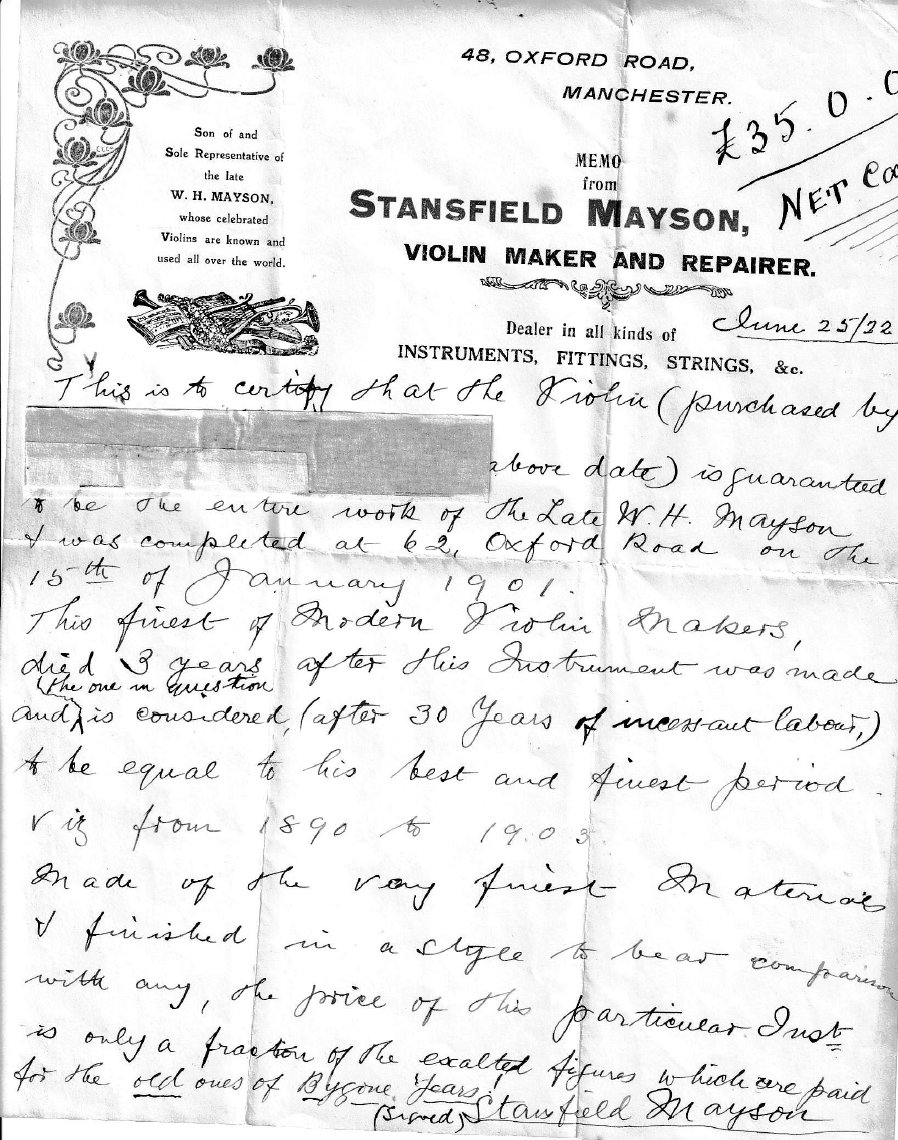 48, OXFORD ROAD,
MANCHESTER.
£35.0.0
NET Co
Son of and
Sole Representative of
the late
W. H. MAYSON,
whose celebrated
Violins are known and
used all over the world.
MEMO
from
STANSFIELD MAYSON,
VIOLIN MAKER AND REPAIRER.
Dealer in all kinds of
INSTRUMENTS, FITTINGS, STRINGS, &c.
June 25/22
This is to certify that the Violin (purchased by
above date) is guaranteed
to be the entire work of the Late W. H. Mayson
& was completed at 62, Oxford Road on the
15th of January 1901.
This finest of Modern Violin Makers,
died 3 years after this Instrument was made
(the one in question
and) is considered, (after 30 Years of incessant labour,)
to be equal to his best and finest period.
viz from 1890 to 1903
Made of the very finest Materials
& finished in a style to bear comparison
with any, the price of this particular Inst
is only a fraction of the exalted figures which are paid
for the old ones of Bygone Years!
(Signed) Stansfield Mayson